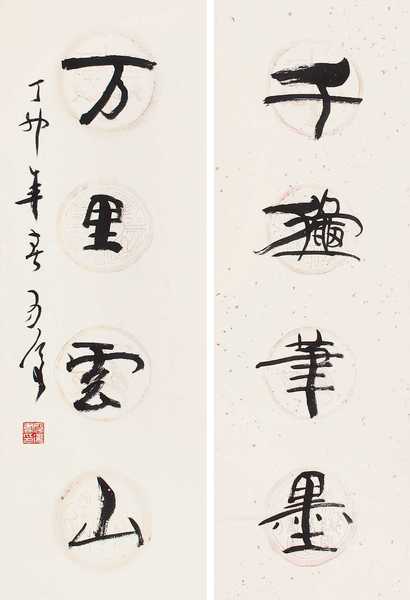 千龝筆墨
万里雲山
丁卯年春